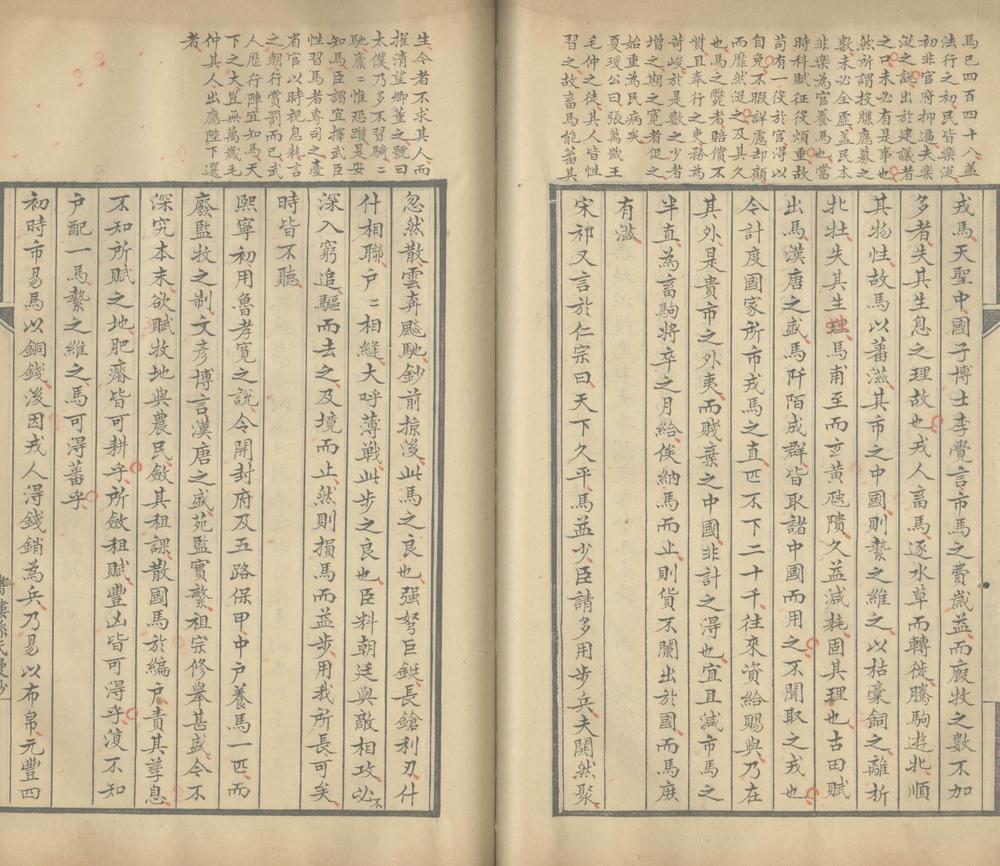 馬已四百四十八蓋
法行之初民皆樂從
初非官府抑逼夫樂
從之說出於建議者
之口未必有是事也
然所謂投牒應募之
數未必全虛蓋民本
非樂為官養馬也當
時科賦征役煩重故
苟有一役於官得以
自免不暇詳慮卻顧
而靡然從之及其久
也馬之斃者賠償不
貲且奉行之吏務為
苛峻於是數之少者
增之期之寬者促之
始重為民病矣
夏瑗公曰張萬歲王
毛仲之徒其人皆性
習之故畜馬能蕃其
戎馬天聖中國子博士李覺言市馬之費歲益而廄牧之數不加
多者失其生息之理故也戎人畜馬逐水草而轉徙騰駒遊牝順
其物性故馬以蕃滋其市之中國則縶之維之以枯槁飼之離析
牝牡失其生理馬甫至而玄黃虺隤久益減耗固其理也古田賦
出馬漢唐之盛馬阡陌成群皆取諸中國而用之不聞取之戎也
今計度國家所市戎馬之直匹不下二十千往來資給賜與乃在
其外是貴市之外夷而賤棄之中國非計之得也宜且減市馬之
半直為畜駒將卒之月給俟納馬而止則貨不闌出於國而馬庶
有滋
宋祁又言於仁宗曰天下久平馬益少臣請多用步兵夫鬨然聚
生令者不求其人而
擢清望卿董之號曰
太僕乃多不習騎一
馳廩二惟恐躓是安
知馬臣謂宜擇武臣
性習馬者專司之臺
省官以時視息耗言
之朝行賞罰而已武
人歷行陣宜知馬天
下之大豈無萬歲毛
仲其人出應陛下選
者
忽然散雲奔飈馳鈔前掠後此馬之良也强弩巨鋋長鎗利刃什
什相聯户二相縫大呼薄戰此步之良也臣料朝廷與敵相攻必不
深入窮追驅而去之及境而止然則損馬而益步用我所長可矣
時皆不聽
熙寧初用魯孝寬之說令開封府及五路保甲中户養馬一匹而
廢監牧之制文彥博言漢唐之盛苑監實繁祖宗修舉甚盛今不
深究本末欲賦牧地與農民斂其租課散國馬於編户責其孳息
不知所賦之地肥瘠皆可耕乎所斂租賦豐凶皆可得乎復不知
户配一馬縶之維之馬可得蕃乎
初時市易馬以銅錢後因戎人得錢銷為兵乃易以布帛元豐四